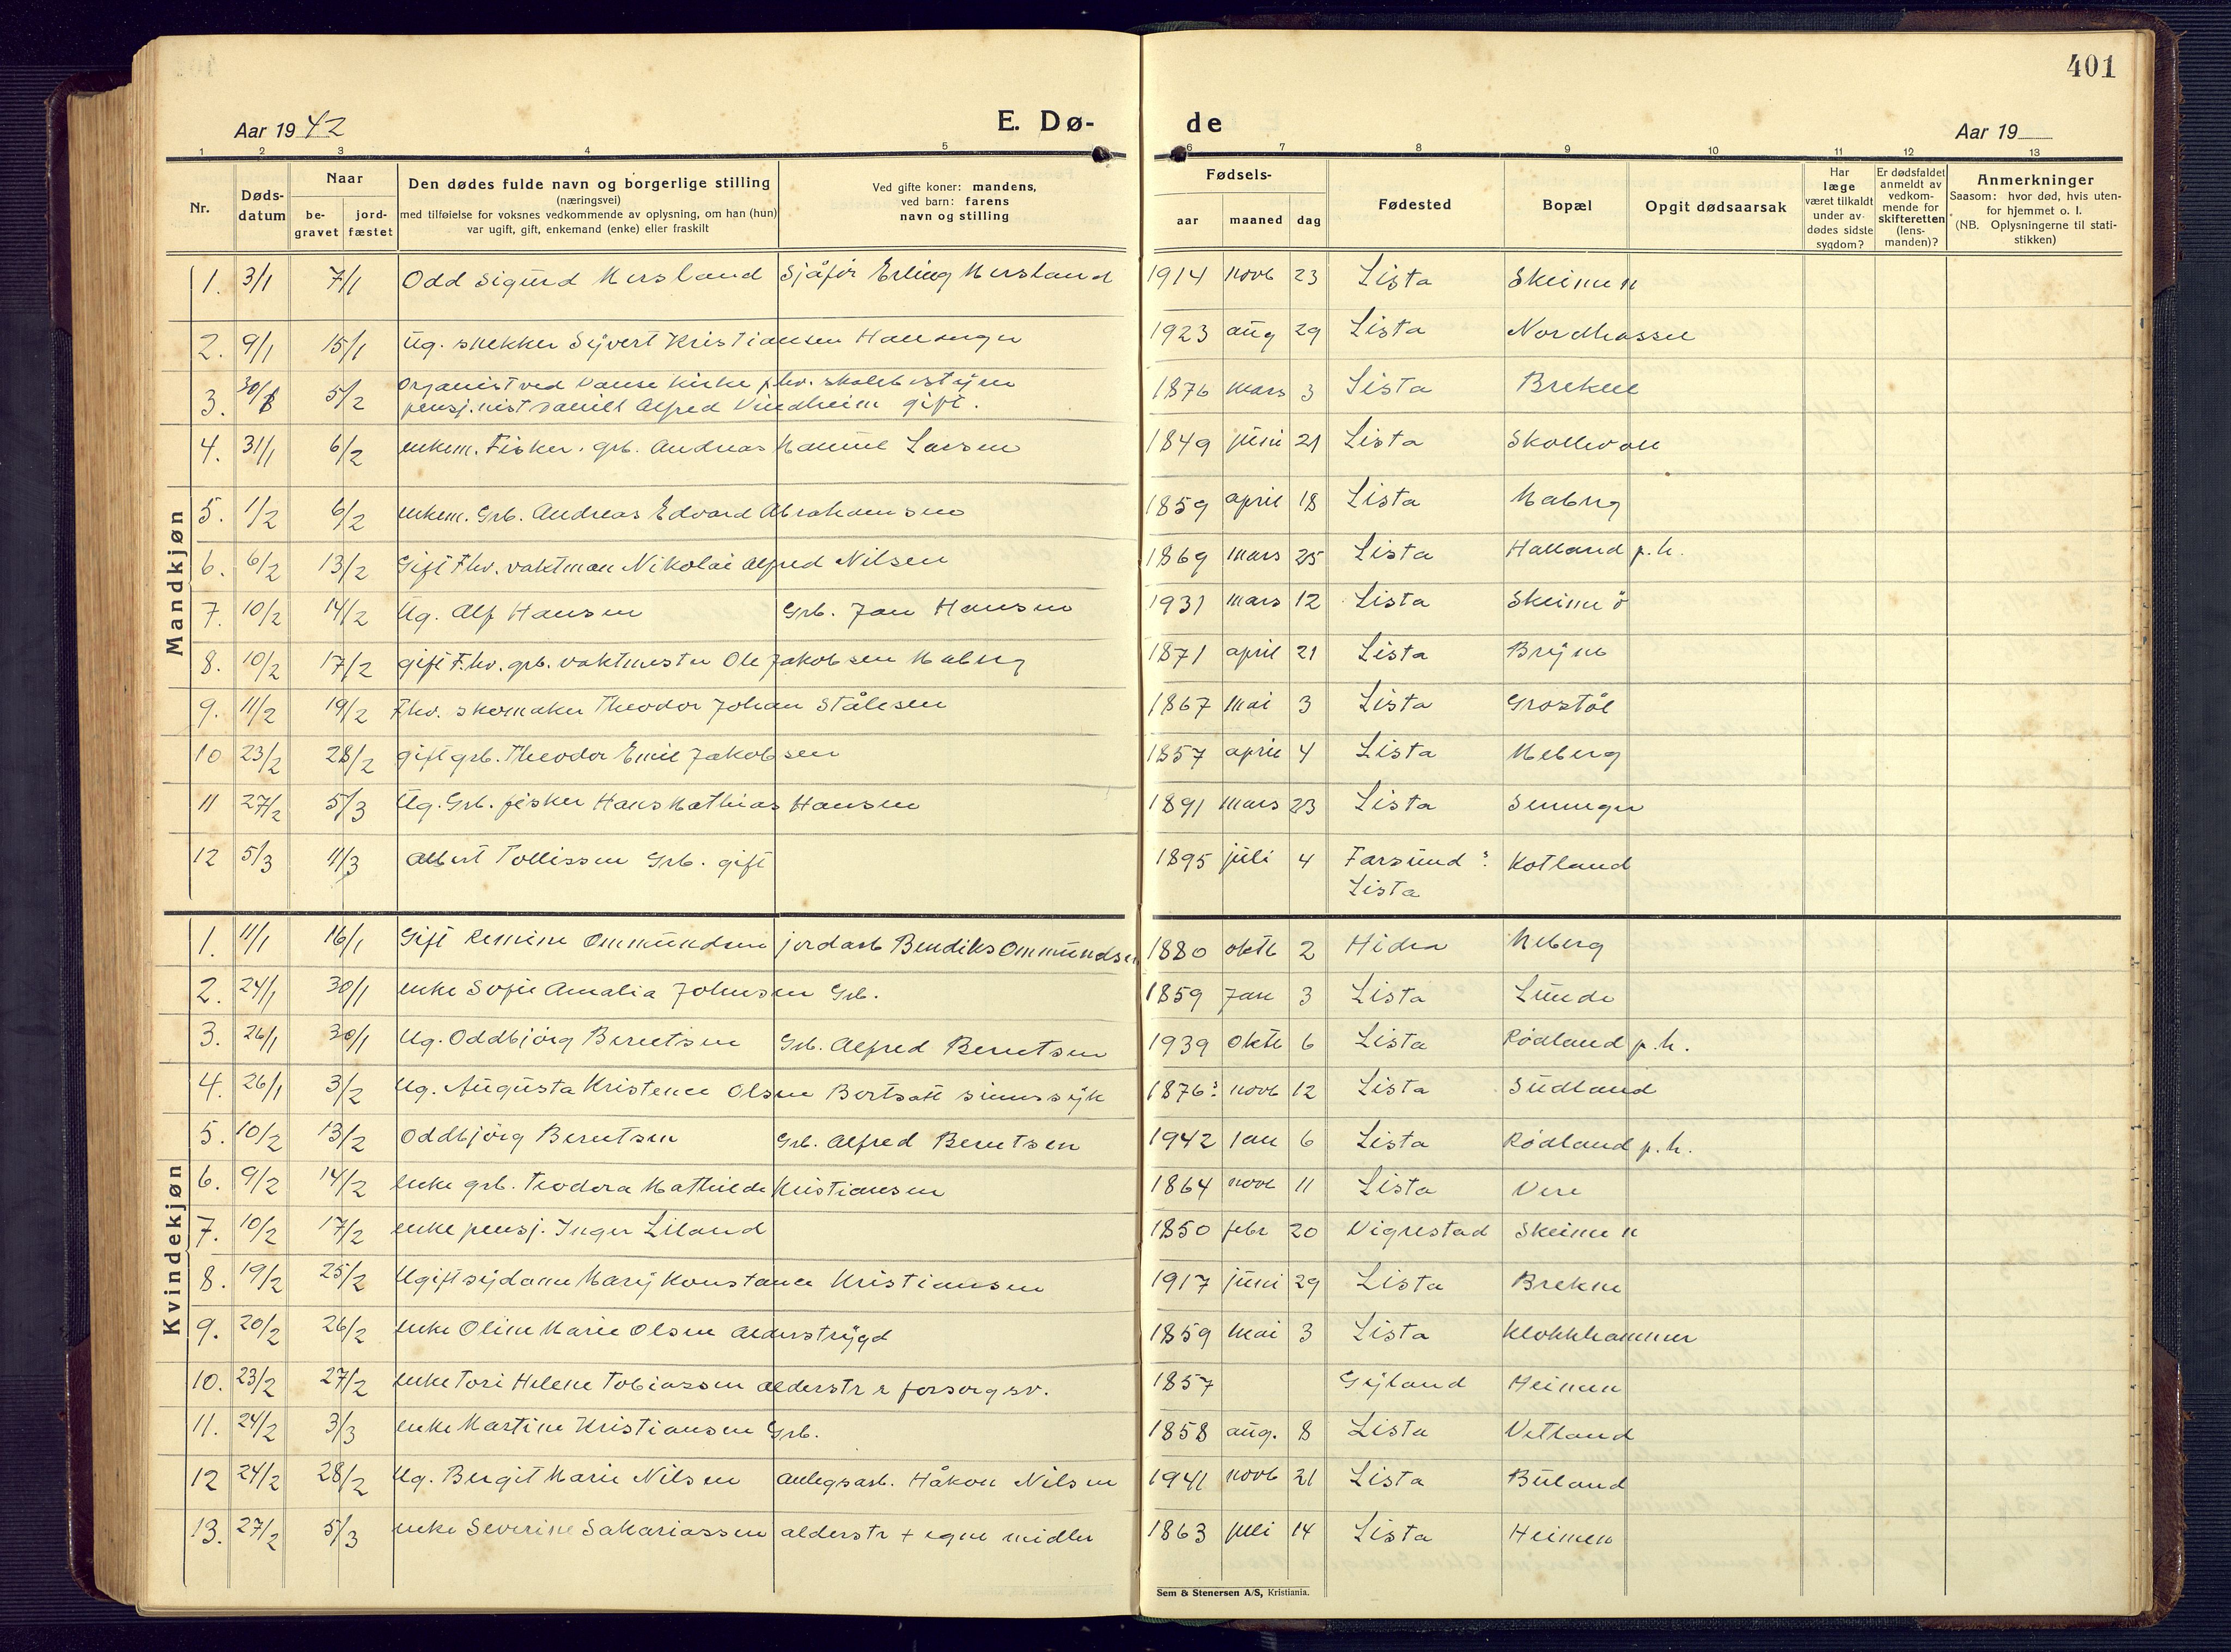 401
Aar 1942 E. Dø- de Aar 19
1 2 3 4 5 6 7 8 9 10 11 12 13
Nr.
Døds-
datum
Naar
be-
gravet
jord-
fæstet
Den dødes fulde navn og borgerlige stilling
(næringsvei)
med tilføielse for voksnes vedkommende av oplysning, om han (hun)
var ugift, gift, enkemand (enke) eller fraskilt
Ved gifte koner: mandens,
ved barn: farens
navn og stilling
Fødsels-
aar maaned dag
Fødested
Bopæl
Opgit dødsaarsak
Har
læge
været tilkaldt
under av-
dødes sidste
sygdom?
Er dødsfaldet
anmeldt av
vedkom-
mende for
skifteretten
(lens-
manden)?
Anmerkninger
Saasom: hvor død, hvis uten-
for hjemmet o. l.
(NB. Oplysningerne til stati-
stikken)
Mandkjøn
1. 3/1 7/1 Odd Sigurd Mersland Sjåfør Erling Mersland 1914 novb 23 Lista Skeimen
2. 9/1 15/1 Ug. snekker Syvert Kristiansen 1923 aug 29 Lista Nordhassel
3. 30/1 5/2 Organist ved Vanse Kirke fhv. skolebestyrer
pensj.nist Daniel Alfred Vindheim gift. 1876 mars 3 Lista Brekne
4. 31/1 6/2 enkem. Fisker. grb. Andreas Larsen 1849 juni 21 Lista Skollevoll
5. 1/2 6/2 enkem. Grb. Andreas Edvard Abrahamsen 1859 april 18 Lista Maberg
6. 6/2 13/2 Gift Fhv. vaktman Nikolai Alfred Nilsen 1869 mars 25 Lista Halland p.h.
7. 10/2 14/2 Ug. Alf Hansen Grb. Jan Hansen 1931 mars 12 Lista Skeime ø
8. 10/2 17/2 gift F.hv. grb. vaktmester Ole Jakobsen Maberg 1871 april 21 Lista Bryne
9. 11/2 19/2 Fhv. skomaker Theodor Johan Stålesen 1867 mai 3 Lista Grostøl
10 23/2 28/2 gift grb. Theodor Emil Jakobsen 1857 april 4 Lista Meberg
11 27/2 5/3 Ug. Grb. fisker Hans Mathias Hansen 1891 mars 23 Lista
12 5/3 11/3 Albert Tollissen Grb. gift 1895 juli 4 Farsund? Kotland
Lista
Kvindekjøn
1. 11/1 16/1 Gift Remine Ommundsen jordarb Bendiks Ommundsen 1880 oktb 2 Hidra Meberg
2. 24/1 30/1 enke Sofie Amalia Johnsen Grb. 1859 Jan 3 Lista Lunde
3. 26/1 30/1 Ug. Oddbjørg Berntsen Grb. Alfred Berntsen 1939 Oktb 6 Lista Rødland p.h.
4. 26/1 3/2 Ug. Augusta Kristence Olsen Bortsatt sinnssyk 1876? novb 12 Lista Sudland
5. 10/2 13/2 Oddbjörg Berntsen Grb. Alfred Berntsen 1942 Jan 6 Lista Rødland p.h.
6. 9/2 14/2 enke grb. Teodora Mathilde Kristiansen 1864 novb 11 Lista Vere
7. 10/2 17/2 enke pensj. Inger Liland 1850 febr 20 Vigrestad Skeimen
8. 19/2 25/2 Ugift sydame Mary Konstance Kristiansen 1917 juni 29 Lista Brekne
9. 20/2 26/2 enke Oline Marie Olsen Alderstrygd 1859 mai 3 Lista Klokkhammer
10. 23/2 27/2 enke Tori Helene Tobiassen alderstr & forsorgsv. 1857 Gyland Heimen
11. 24/2 3/3 enke Martine Kristiansen Grb. 1858 aug. 8 Lista Vetland
12 24/2 28/2 Ug. Bergit Marie Nilsen anlegsarb. Håkon Nilsen 1941 novb 21 Lista Buland
13. 27/2 5/3 enke Severine Sakariassen alderstr + egne midler 1863 juli 14 Lista Heimen
Sem & Stenersen A/S, Kristiania.